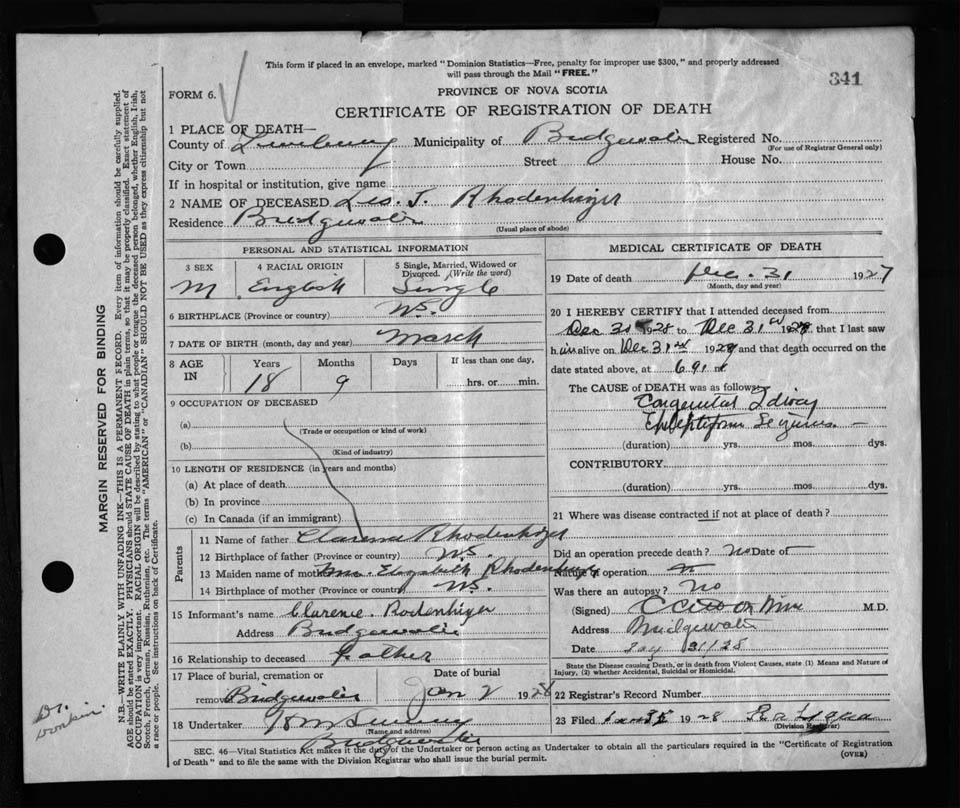 This form if placed in an envelope, marked "Dominion Statistics—Free, penalty for improper use $300," and properly addressed
will pass through the Mail "FREE."
341
FORM 6.
PROVINCE OF NOVA SCOTIA
CERTIFICATE OF REGISTRATION OF DEATH
1 PLACE OF DEATH—
County of Lunenburg Municipality of Bridgewater Registered No.
(For use of Registrar General only)
City or Town Street House No.
If in hospital or institution, give name
2 NAME OF DECEASED Leo. T. Rhodenhizer
Residence Bridgewater
(Usual place of abode)
PERSONAL AND STATISTICAL INFORMATION
3 SEX 4 RACIAL ORIGIN 5 Single, Married, Widowed or Divorced. (Write the word)
M English Single
6 BIRTHPLACE (Province or country) N.S.
7 DATE OF BIRTH (month, day and year) March
8 AGE IN Years Months Days If less than one day,
18 9 hrs. or min.
9 OCCUPATION OF DECEASED
(a)
(Trade or occupation or kind of work)
(b)
(Kind of industry)
10 LENGTH OF RESIDENCE (in years and months)
(a) At place of death
(b) In province
(c) In Canada (if an immigrant)
Parents
11 Name of father Clarence Rhodenhizer
12 Birthplace of father (Province or country) N.S.
13 Maiden name of mother Mrs. Elizabeth Rhodenhizer
14 Birthplace of mother (Province or country) N.S.
15 Informant's name Clarence Rodenhizer
Address Bridgewater
16 Relationship to deceased Father
17 Place of burial, cremation or removal Date of burial
Bridgewater Jan 2 1928
18 Undertaker
(Name and address)
Bridgewater
MEDICAL CERTIFICATE OF DEATH
19 Date of death Dec. 31 1927
(Month, day and year)
20 I HEREBY CERTIFY that I attended deceased from
Dec 31 1928 to Dec 31st 192 that I last saw
him alive on Dec 31st 192 and that death occurred on the
date stated above, at 6
The CAUSE of DEATH was as follows:
Congenital Idiocy
Epileptiform Seizures.
(duration) yrs. mos. dys.
CONTRIBUTORY
(duration) yrs. mos. dys.
21 Where was disease contracted if not at place of death?
Did an operation precede death? no Date of
Nature of operation
Was there an autopsy? no
(Signed) M.D.
Address Bridgewater
Date 31/28
State the Disease causing Death, or in death from Violent Causes, state (1) Means and Nature of
Injury, (2) whether Accidental, Suicidal or Homicidal.
22 Registrar's Record Number
23 Filed 1928
(Division Registrar)
SEC. 46—Vital Statistics Act makes it the duty of the Undertaker or person acting as Undertaker to obtain all the particulars required in the "Certificate of Registration
of Death" and to file the same with the Division Registrar who shall issue the burial permit.
(OVER)
MARGIN RESERVED FOR BINDING
N.B.—WRITE PLAINLY WITH UNFADING INK—THIS IS A PERMANENT RECORD. Every item of information should be carefully supplied.
AGE should be stated EXACTLY. PHYSICIANS should STATE CAUSE OF DEATH in plain terms, so that it may be properly classified. Exact statement of
OCCUPATION is very important. RACIAL ORIGIN will be described by stating to what people or tongue the deceased person belonged, whether English, Irish,
Scotch, French, German, Russian, Ruthenian, etc. The terms "AMERICAN" or "CANADIAN" SHOULD NOT BE USED as they express citizenship but not
a race or people. See instructions on back of Certificate.
Dr.